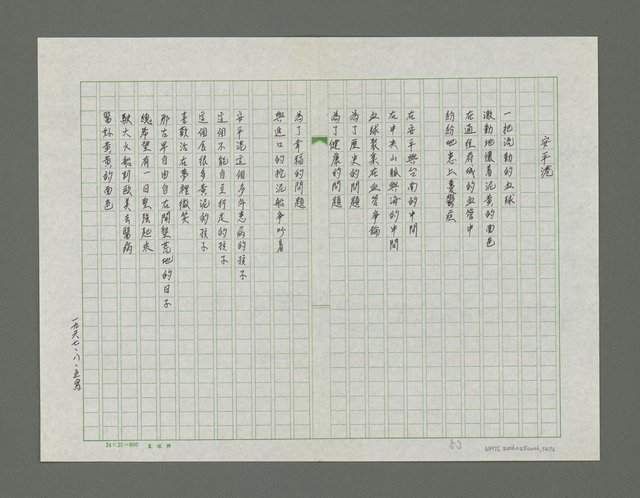 安平港
一把流動的血球
激動地懷着泥黃的面色
在通往府城的血管中
紛紛地患上憂鬱症
在安平與台南的中間
在中央山脈與海的中間
血球聚集在血管爭論
為了歷史的問題
為了健康的問題
為了幸福的問題
與進口的挖泥船爭吵着
安平港這個多年患病的孩子
這個不能自立行走的孩子
這個屈很多黃泥的孩子
喜歡活在夢裡微笑
那古早自由自在開墾荒地的日子
總希望有一日堅強起來
駛大火船到歐美去醫病
醫好黃黃的面色
一九六七、八、
24×25=600
52
NMTL20060250006